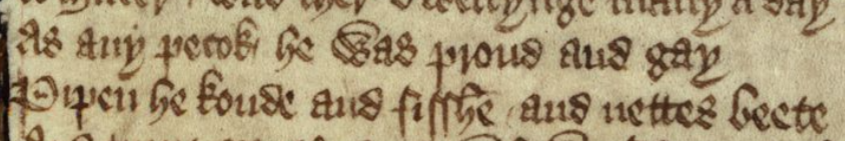 was ther dwellynge many a day
As any pecok he was proud and gay
Pipen he koude and fisshe and nettes beete